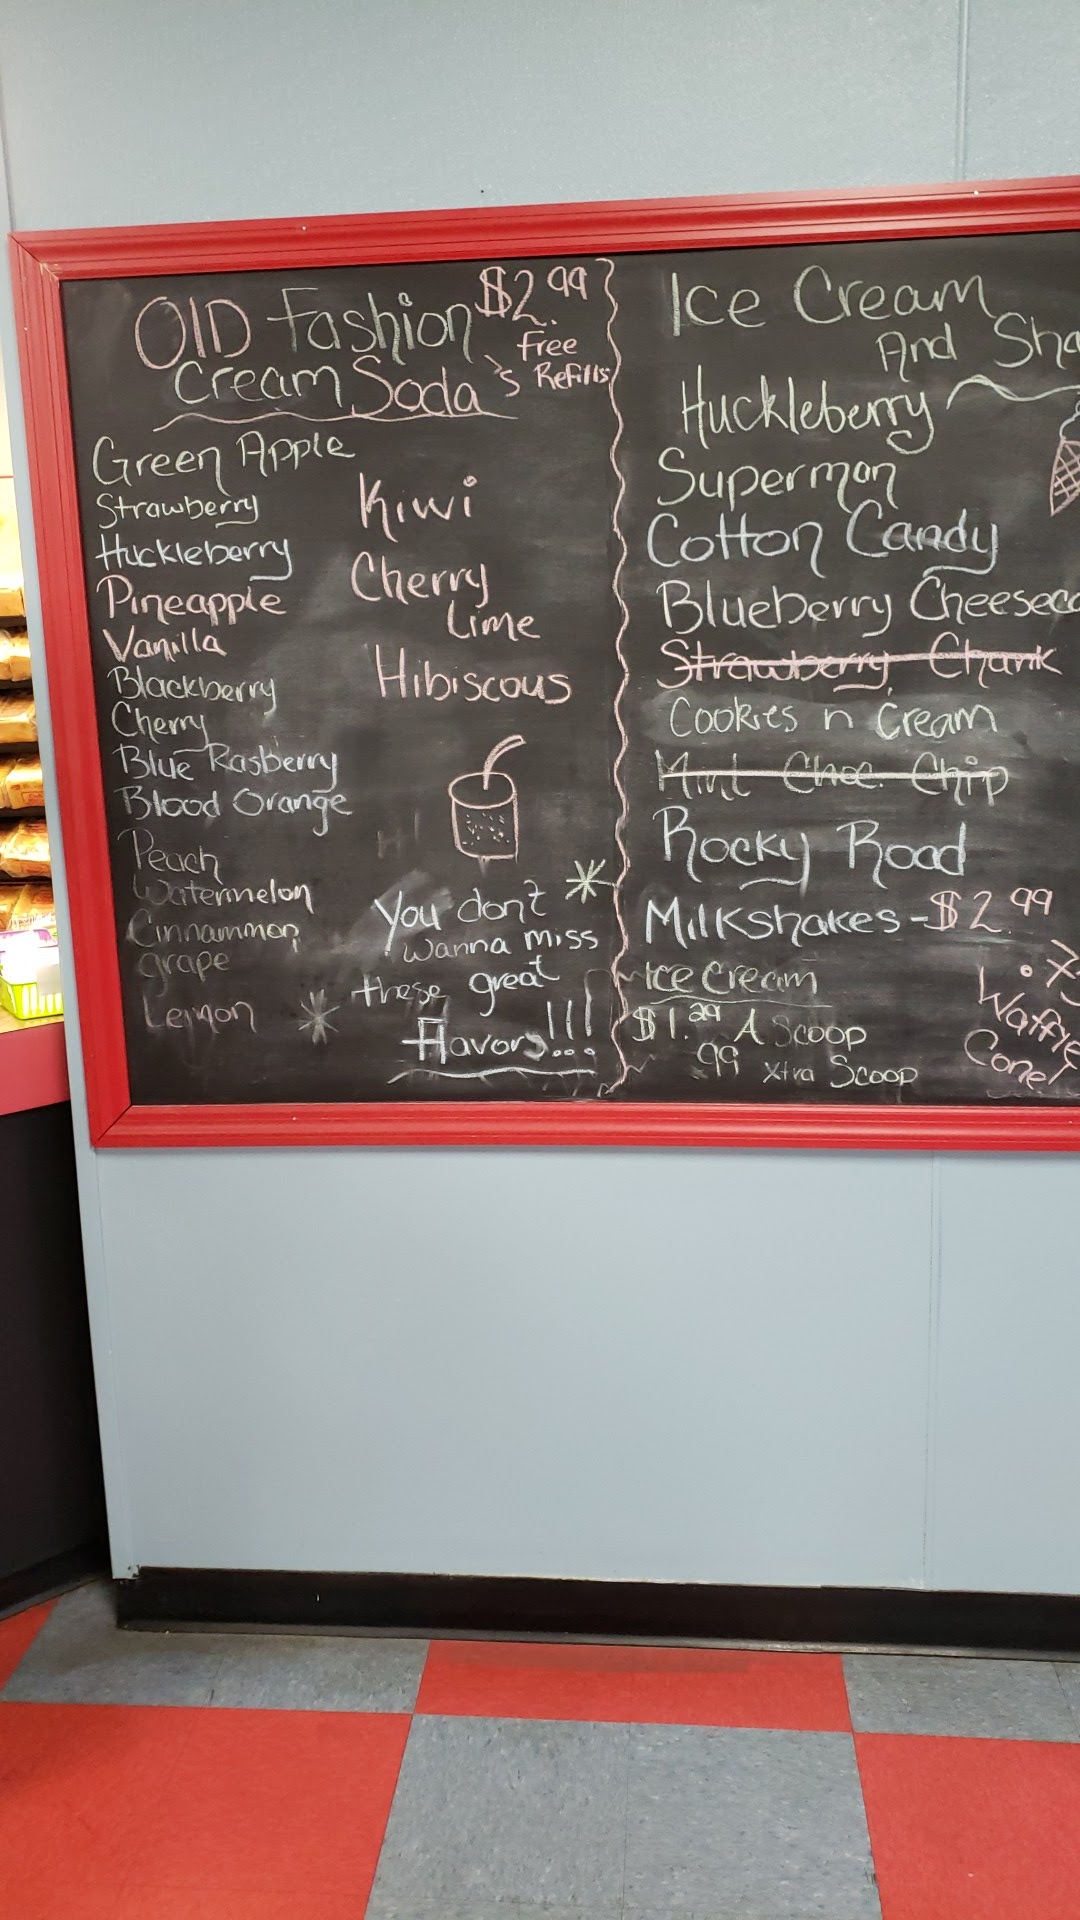 OlD Fashion $2.99
Cream Soda's Free
Refills
Green Apple
Strawberry
Huckleberry
Pineapple
Vanilla
Blackberry
Cherry
Blue Rasberry
Blood Orange
Peach
Watermelon
Cinnammon
grape
Lemon
Kiwi
Cherry
Lime
Hibiscous
You don't
wanna miss
these great
Flavors!!!...
Ice Cream
And Sha
Huckleberry
Superman
Cotton Candy
Blueberry Cheeseca
Strawberry Chunk
Cookies n Cream
Mint Choc. Chip
Rocky Road
Milkshakes - $2.99
Ice Cream
$1.29 A Scoop
99 xtra Scoop
Waffle
Cone